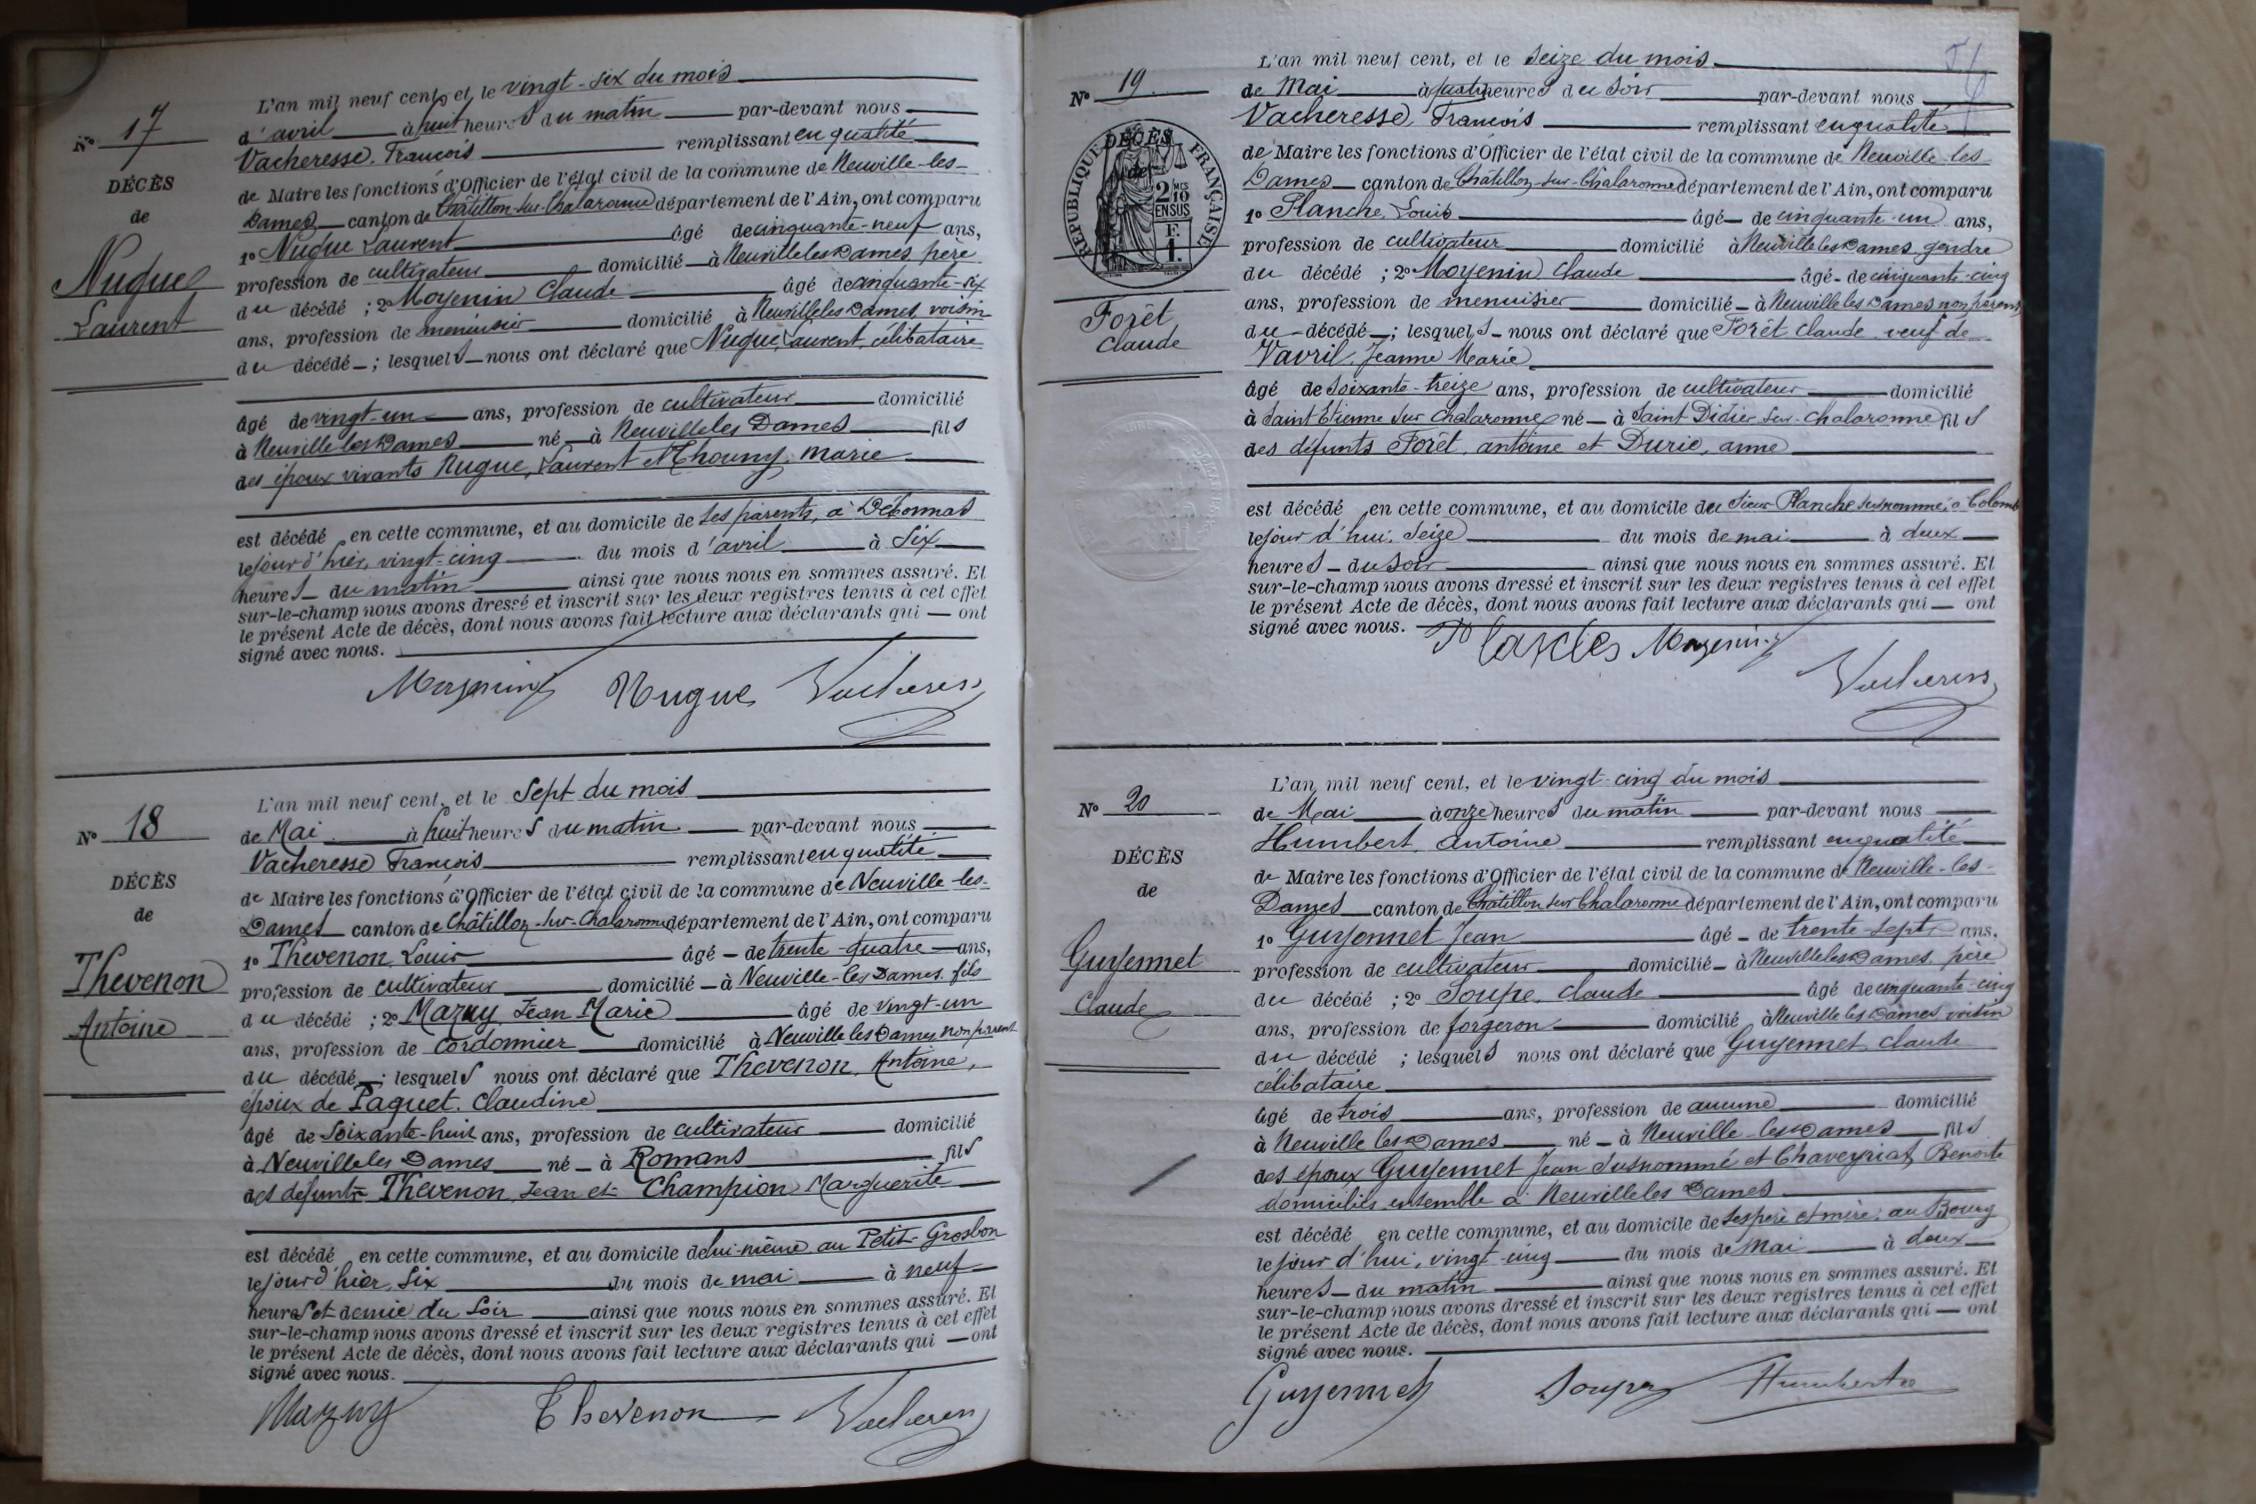 N° 17
DÉCÈS
de
Nugue
Laurent
L'an mil neuf cent, et le vingt-six du mois
d'avril à huit heures du matin par-devant nous
Vacheresse, François remplissant en qualité
de Maire les fonctions d'Officier de l'état civil de la commune de Neuville-les-
Dames canton de Châtillon-sur-Chalaronne département de l'Ain, ont comparu
1° Nugue Laurent âgé de cinquante-neuf ans,
profession de cultivateur domicilié à Neuville les Dames, père
du décédé ; 2° Moyenin Claude âgé de cinquante-six
ans, profession de menuisier domicilié à Neuville les Dames, voisin
du décédé ; lesquels nous ont déclaré que Nugue, Laurent, célibataire
âgé de vingt-un ans, profession de cultivateur domicilié
à Neuville les Dames né à Neuville les Dames fils
des époux vivants Nugue, Laurent et Thouny, Marie
est décédé en cette commune, et au domicile de ses parents, à
le jour d'hier, vingt-cinq du mois d'avril à Six
heures du matin ainsi que nous nous en sommes assuré. Et
sur-le-champ nous avons dressé et inscrit sur les deux registres tenus à cet effet
le présent Acte de décès, dont nous avons fait lecture aux déclarants qui ont
signé avec nous.
Moyenin Nugue Vacheress
N° 18
DÉCÈS
de
Thevenon
Antoine
L'an mil neuf cent, et le Sept du mois
de Mai à huit heures du matin par-devant nous
Vacheresse François remplissant en qualité
de Maire les fonctions d'Officier de l'état civil de la commune de Neuville-les-
Dames canton de Châtillon-sur-Chalaronne département de l'Ain, ont comparu
1° Thevenon, Louis âgé de trente-quatre ans,
profession de cultivateur domicilié à Neuville-les Dames, fils
du décédé ; 2° Mazuy, Jean Marie âgé de vingt-un
ans, profession de cordonnier domicilié à Neuville les Dames, non parent
du décédé ; lesquels nous ont déclaré que Thevenon, Antoine,
époux de Paquet, Claudine
âgé de Soixante-huit ans, profession de cultivateur domicilié
à Neuville les Dames né à Romans fils
des défunts Thevenon, Jean et Champion Marguerite
est décédé en cette commune, et au domicile de lui-même au Petit-Grosbon
le jour d'hier, Six du mois de mai à neuf
heures et demie du Soir ainsi que nous nous en sommes assuré. Et
sur-le-champ nous avons dressé et inscrit sur les deux registres tenus à cet effet
le présent Acte de décès, dont nous avons fait lecture aux déclarants qui ont
signé avec nous.
Mazuy Thevenon Vacheress
N° 19
DÉCÈS
de
RÉPUBLIQUE FRANÇAISE
2 MES
10
EN SUS
F.
1.
Forêt
Claude
L'an mil neuf cent, et le Seize du mois
de Mai à quatre heures du Soir par-devant nous
Vacheresse, François remplissant en qualité
de Maire les fonctions d'Officier de l'état civil de la commune de Neuville-les
Dames canton de Châtillon-sur-Chalaronne département de l'Ain, ont comparu
1° Planche, Louis âgé de cinquante-un ans,
profession de cultivateur domicilié à Neuville les Dames, gendre
du décédé ; 2° Moyenin Claude âgé de cinquante-cinq
ans, profession de menuisier domicilié à Neuville les Dames non parent
du décédé ; lesquels nous ont déclaré que Forêt Claude, veuf de
Vavril, Jeanne Marie
âgé de Soixante-treize ans, profession de cultivateur domicilié
à Saint Etienne sur Chalaronne né à Saint Didier sur-Chalaronne fils
des défunts Forêt, Antoine et Durie, Anne
est décédé en cette commune, et au domicile du Sieur Planche susnommé, à Colomb
le jour d'hui, Seize du mois de mai à deux
heures du Soir ainsi que nous nous en sommes assuré. Et
sur-le-champ nous avons dressé et inscrit sur les deux registres tenus à cet effet
le présent Acte de décès, dont nous avons fait lecture aux déclarants qui ont
signé avec nous.
Moyenin
Vacheress
N° 20
DÉCÈS
de
Guyennet
Claude
L'an mil neuf cent, et le vingt-cinq du mois
de Mai à onze heures du matin par-devant nous
Humbert, Antoine remplissant en qualité
de Maire les fonctions d'Officier de l'état civil de la commune de Neuville-les-
Dames canton de Châtillon sur Chalaronne département de l'Ain, ont comparu
1° Guyennet Jean âgé de trente-sept ans,
profession de cultivateur domicilié à Neuville les Dames, père
du décédé ; 2° Soupe, Claude âgé de cinquante-cinq
ans, profession de forgeron domicilié à Neuville les Dames, voisin
du décédé ; lesquels nous ont déclaré que Guyennet Claude
célibataire
âgé de trois ans, profession de aucune domicilié
à Neuville les Dames né à Neuville-les Dames fils
des époux Guyennet Jean susnommé et Chaveyriat, Benoite
domiciliés ensemble à Neuville les Dames
est décédé en cette commune, et au domicile de ses père et mère, au Bourg
le jour d'hui, vingt-cinq du mois de Mai à deux
heures du matin ainsi que nous nous en sommes assuré. Et
sur-le-champ nous avons dressé et inscrit sur les deux registres tenus à cet effet
le présent Acte de décès, dont nous avons fait lecture aux déclarants qui ont
signé avec nous.
Guyennet Soupe Humbert